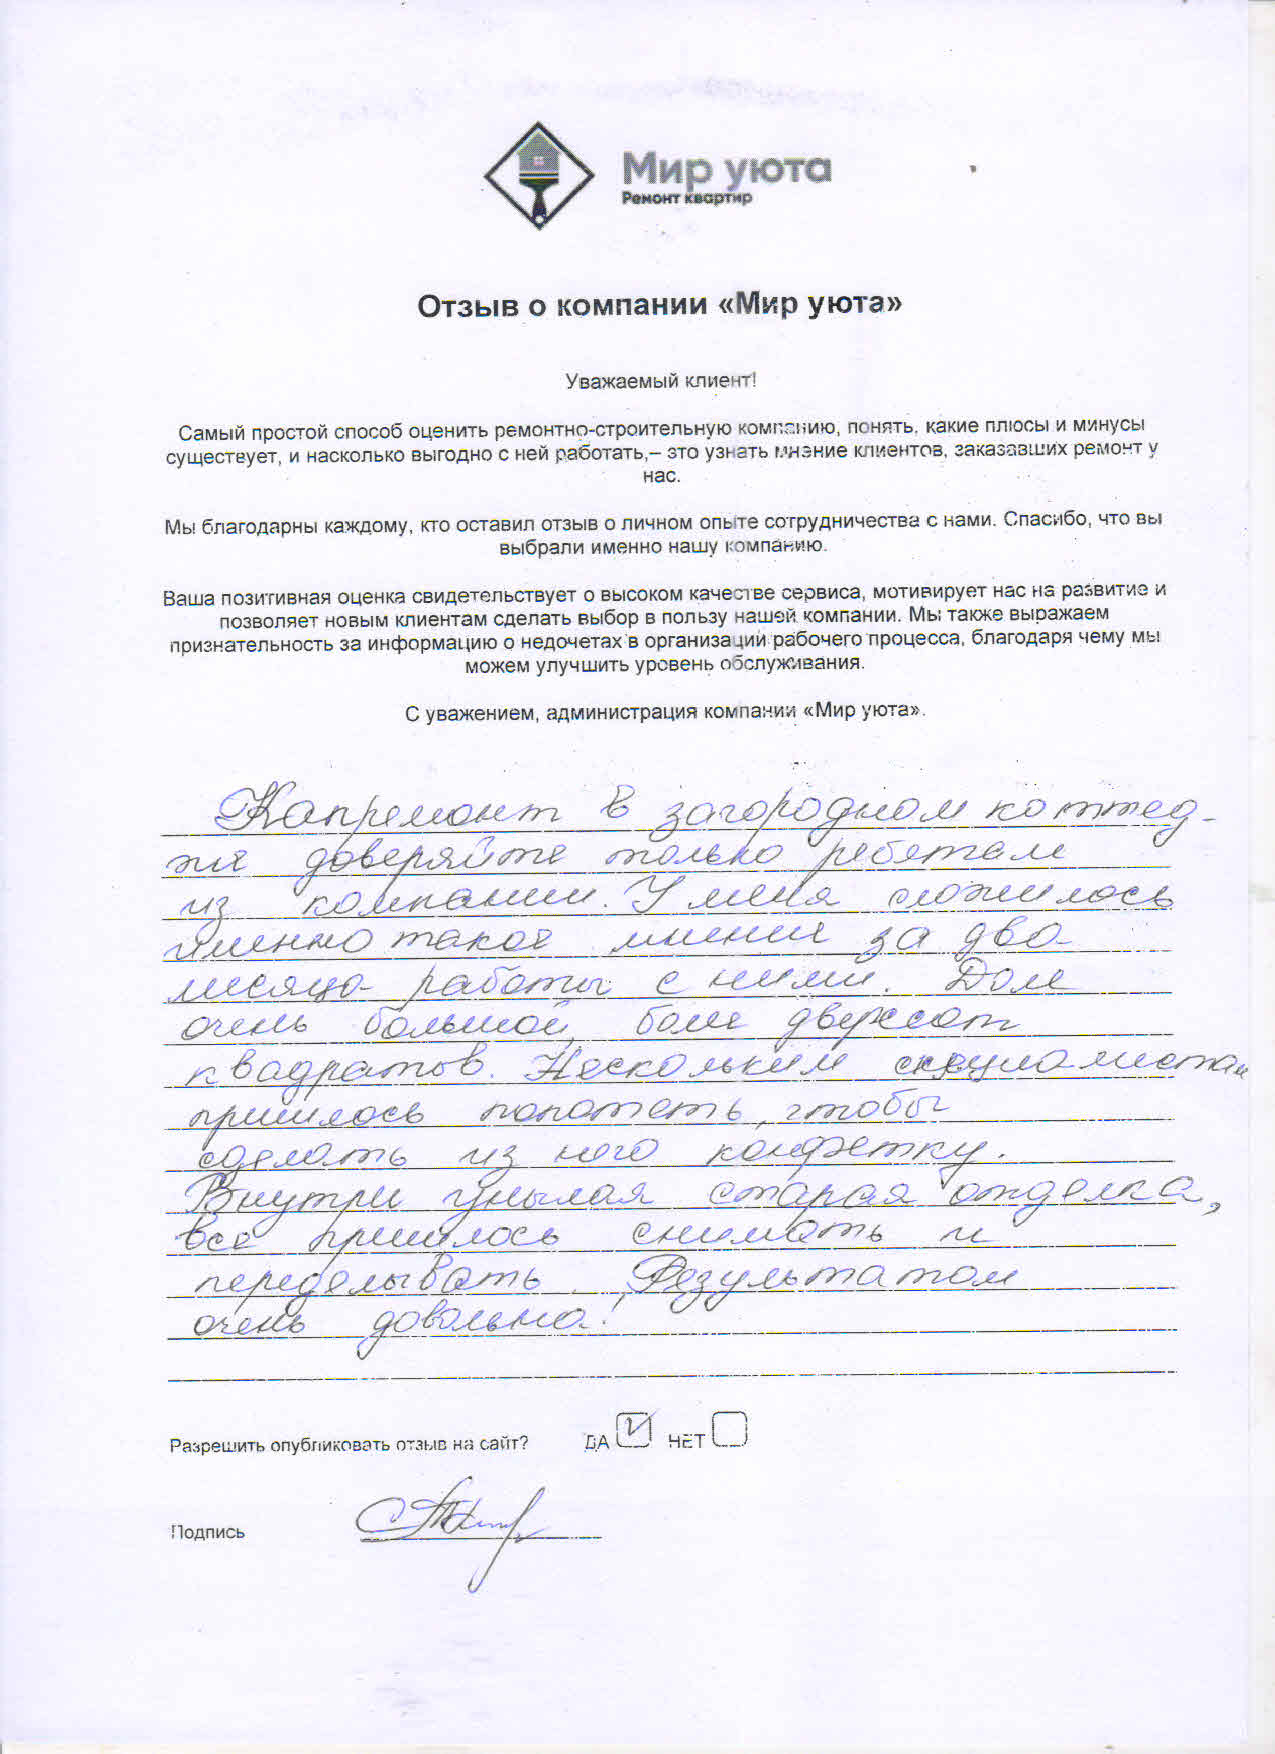 Мир уюта
Ремонт квартир
Отзыв о компании «Мир уюта»
Уважаемый клиент!
Самый простой способ оценить ремонтно-строительную компанию, понять, какие плюсы и минусы
существует, и насколько выгодно с ней работать,– это узнать мнение клиентов, заказавших ремонт у
нас.
Мы благодарны каждому, кто оставил отзыв о личном опыте сотрудничества с нами. Спасибо, что вы
выбрали именно нашу компанию.
Ваша позитивная оценка свидетельствует о высоком качестве сервиса, мотивирует нас на развитие и
позволяет новым клиентам сделать выбор в пользу нашей компании. Мы также выражаем
признательность за информацию о недочетах в организации рабочего процесса, благодаря чему мы
можем улучшить уровень обслуживания.
С уважением, администрация компании «Мир уюта».
Капремонт в загородном коттед-
же доверяйте только ребятам
из компании. У меня сложилось
именно такое мнение за два
месяца работы с ними. Дом
очень большой, более двухсот
квадратов. Нескольким специалистам
пришлось попотеть, чтобы
сделать из него конфетку.
Внутри унылая старая отделка,
все пришлось снимать и
переделывать. Результатом
очень довольна!
Разрешить опубликовать отзыв на сайт? ДА НЕТ
Подпись